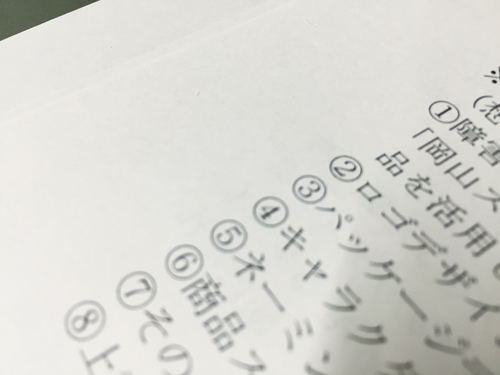 ※
(想
①障害
「岡山ス
品を活用
②ロゴデザイ
③パッケージ
④キャラク
⑤ネーミン
⑥商品
⑦その
⑧上